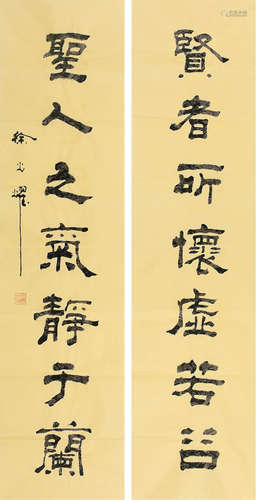 賢者所懷虛若谷
聖人之氣靜于蘭
徐光耀